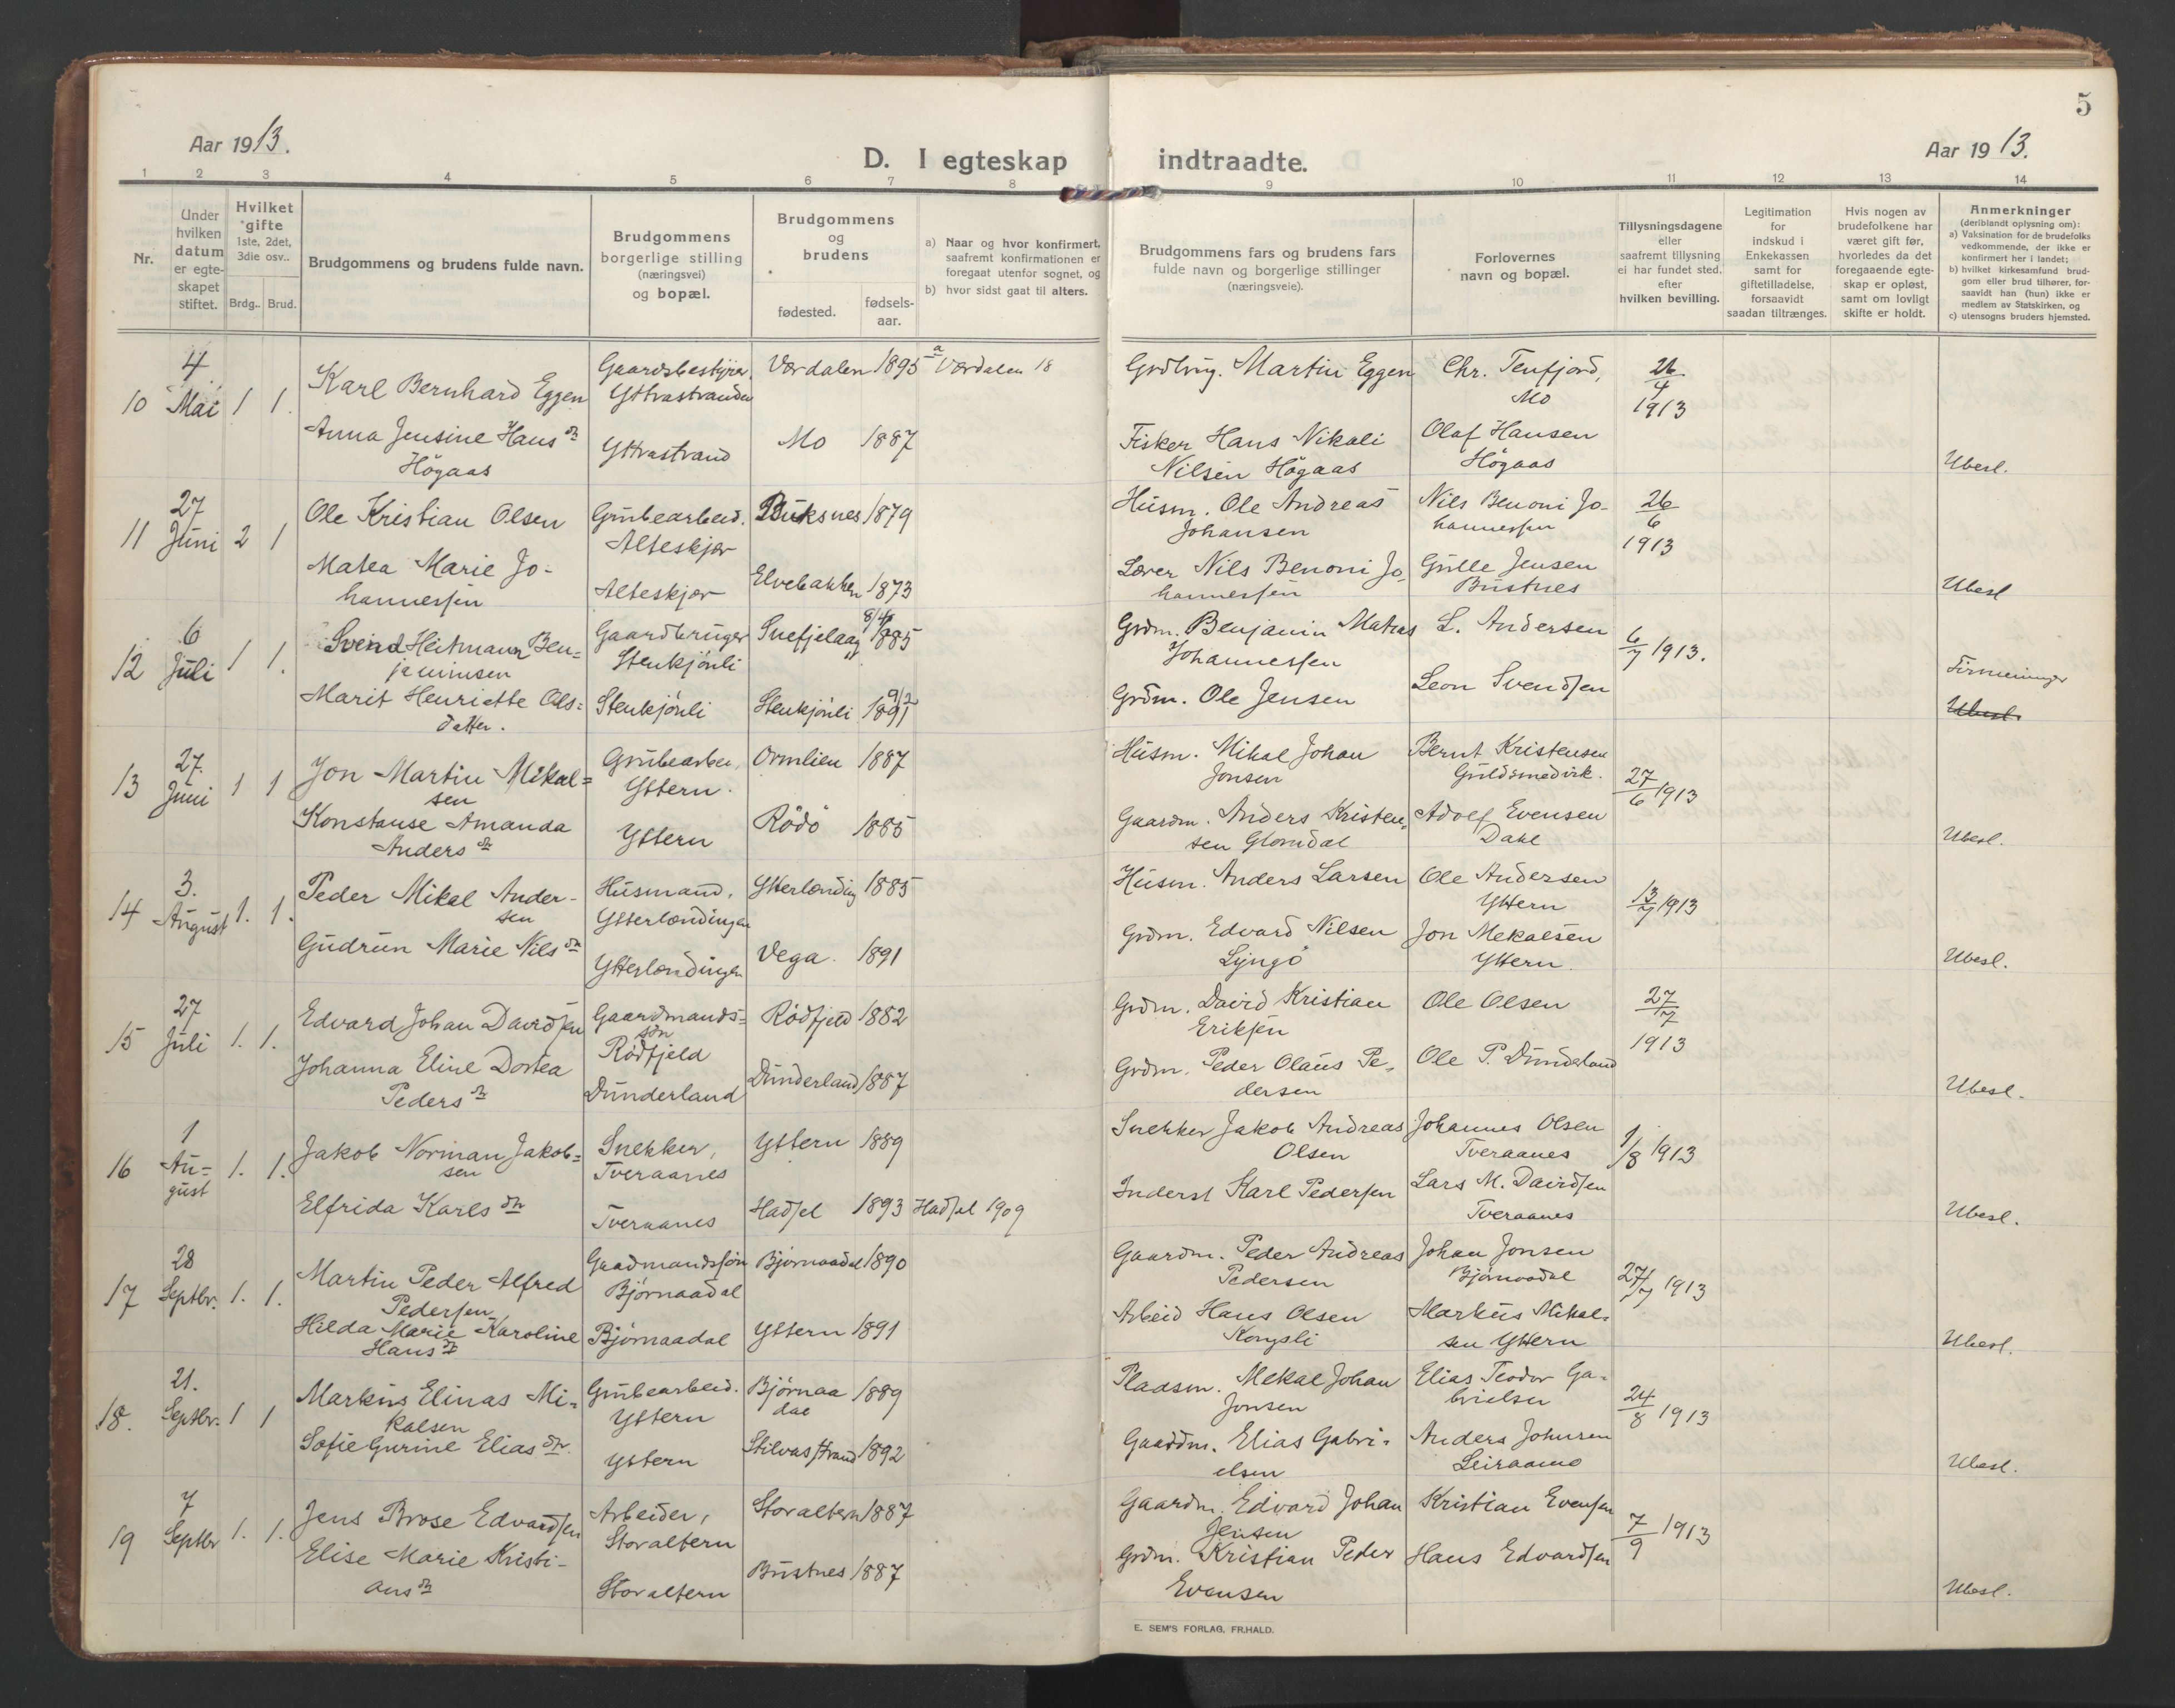 Aar 1913.
D. I egteskap indtraadte.
Aar 1913.
5
1 2 3 4 5 6 7 8 9 10 11 12 13 14
Nr.
Under
hvilken
datum
er egte-
skapet
stiftet.
Hvilket
gifte
1ste, 2det,
3die osv..
Brdg.. Brud.
Brudgommens og brudens fulde navn.
Brudgommens
borgerlige stilling
(næringsvei)
og bopæl.
Brudgommens
og
brudens
fødested.
fødsels-
aar.
a) Naar og hvor konfirmert,
saafremt konfirmationen er
foregaat utenfor sognet, og
b) hvor sidst gaat til alters.
Brudgommens fars og brudens fars
fulde navn og borgerlige stillinger
(næringsveie).
Forlovernes
navn og bopæl.
Tillysningsdagene
eller
saafremt tillysning
ei har fundet sted,
efter
hvilken bevilling.
Legitimation
for
indskud i
Enkekassen
samt for
giftetilladelse,
forsaavidt
saadan tiltrænges.
Hvis nogen av
brudefolkene har
været gift før,
hvorledes da det
foregaaende egte-
skap er opløst,
samt om lovligt
skifte er holdt.
Anmerkninger
(deriblandt oplysning om):
a) Vaksination for de brudefolks
vedkommende, der ikke er
konfirmert her i landet;
b) hvilket kirkesamfund brud-
gom eller brud tilhører, for-
saavidt han (hun) ikke er
medlem av Statskirken, og
c) utensogns bruders hjemsted.
10
4
Mai
1 1.
Karl Bernhard Eggen
Anna Jensine Hans dtr
Högaas
Gaardsbestyrer,
Yttrastranden
Yttrastrand
Værdalen 1895
a Værdalen 18
Mo 1887
Grdbrug. Martin Eggen
Fisker Hans Nikoli
Nilsen Högaas
Chr. Tenfjord,
Mo
Olaf Hansen
Högaas
26
4
1913
Ubesl.
11
27
Juni
2 1
Ole Kristian Olsen
Matea Marie Jo-
hannessen
Grubearbeid.
Alteskjær
Alteskjær
Buksnes 1879
Elvebakken 1873
Husm. Ole Andreas
Johansen
Lærer Nils Benoni Jo-
hannessen
Nils Benoni Jo-
hannessen
Gulle Jensen
Bustnes
26
6
1913
Ubesl
12
6
Juli
1 1.
Svend Heitmann Ben=
jaminsen
Marit Henriette Ols=
datter.
Gaardbruger
Stenkjönli
Stenkjönli
Snefjelaag 8/4 1885
Stenkjönli 9/2 1891
Grdm. Benjamin Matias
Johannessen
Grdm. Ole Jensen
L. Andersen
Leon Svendsen
6/7 1913.
Firmeninger
Ubesl.
13
27.
Juni
1 1
Jon Martin Mikal=
sen
Konstanse Amanda
Anders dtr
Grubearbei,
Yttern.
Yttern
Ormlien 1887
Rödö 1885
Husm. Mikal Johan
Jonsen
Gaardm. Anders Kristen-
sen Glomdal
Bernt Kristensen
Guldsmedvik.
Adolf Evensen
Dahl
27/6 1913
Ubesl.
14
3.
August
1. 1.
Peder Mikal Ander-
sen
Gudrun Marie Nils dtr
Husmand,
Ytterlændingen
Ytterlændingen
Ytterlænding 1885
Vega. 1891
Husm. Anders Larsen
Grdm. Edvard Nilsen
Lyngö
Ole Andersen
Yttern
Jon Mekalsen
Yttern
13/7 1913
Ubesl.
15
27
Juli
1. 1.
Edvard Johan Davidsen
Johanna Eline Dortea
Peders dtr
Gaardmands=
søn
Rödfjeld
Dunderland
Rödfjeld 1882
Dunderland 1887
Grdm. David Kristian
Eriksen
Grdm. Peder Olaus Pe-
dersen
Ole Olsen
Ole P. Dunderland
27
7
1913
Ubesl.
16
1
Au=
gust
1. 1.
Jakob Norman Jakob=
sen
Elfrida Karls dtr
Snekker,
Tveraanes
Tveraanes
Yttern 1889
Hadsel 1893 Hadsel 1909
Snekker Jakob Andreas
Olsen
Inderst Karl Pedersen
Johannes Olsen
Tveraanes
Lars M. Davidsen
Tveraanes
1/8 1913
Ubesl.
17
28
Septbr.
1. 1.
Martin Peder Alfred
Pedersen
Hilda Marie Karoline
Hans dtr
Gaadmandsøn
Bjørnaadal
Bjørnaadal
Bjørnaadal 1890
Yttern 1891
Gaardm. Peder Andreas
Pedersen
Arbeid Hans Olsen
Kongsli
Johan Jonsen
Bjørnaadal
Markus Mikal-
sen Yttern
27/7 1913
Ubesl.
18.
21.
Septbr.
1 1
Markus Elinas Mi-
kalsen
Sofie Gurine Elias dtr.
Grubearbeid.
Yttern
Yttern
Bjørnaa
dal 1889
Stilvasstrand 1892
Pladsm. Mekal Johan
Jonsen
Gaardm. Elias Gabri-
elsen
Elias Teodor Ga-
brielsen
Anders Johnsen
Leiraamo
24/8 1913
Ubesl.
19
7
Septbr
1. 1.
Jens Brose Edvardsen
Elise Marie Kristi-
ans dtr
Arbeider,
Storaltern
Storaltern
Storaltern 1887
Bustnes 1887
Gaardm. Edvard Johan
Jensen
Grdm. Kristian Peder
Evensen
Kristian Evensen
Hans Edvardsen
7/9 1913
Ubesl.
E. SEM'S FORLAG, FR.HALD.